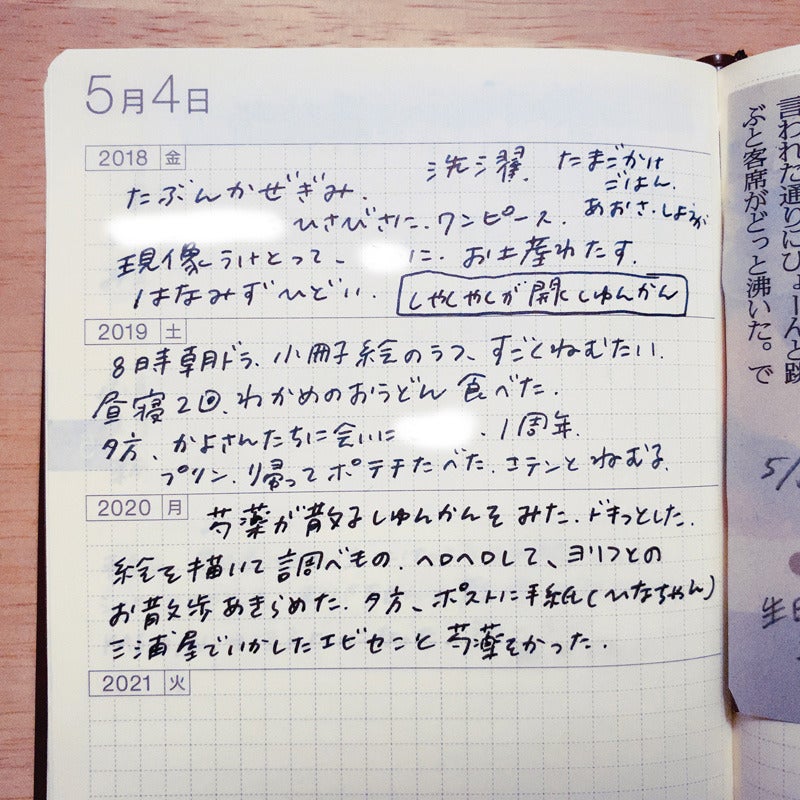 5月4日
2018 金
洗濯 たまごかけ
ごはん.
たぶんかぜぎみ.
あおさ.しょうが
ひさびさに.ワンピース.
現像うけとって、 に.お土産わたす.
はなみずひどい. しゃくやくが開くしゅんかん
2019 土
8時朝ドラ、小冊子絵のラフ、すごくねむたい.
昼寝2回.わかめのおうどん食べた.
夕方、かよさんたちに会いに .1周年.
プリン.帰ってポテチたべた.コテンとねむる.
2020 月
芍薬が散るしゅんかんをみた.ドキッとした.
絵を描いて調べもの.ヘロヘロして、ヨリフとの
お散歩あきらめた.夕方、ポストに手紙(ひなちゃん)
三浦屋でいかしたエビセンと芍薬をかった.
2021 火
言われた通りにぴょーんと跳
ぶと客席がどっと沸いた。で
5/
生日